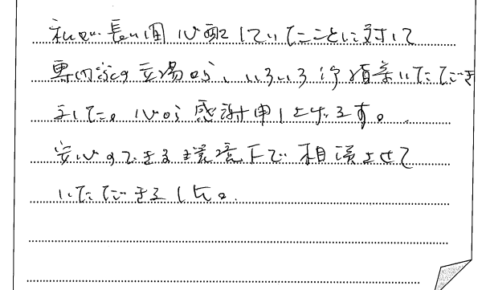 私が長い間心配していたことに対して
専門家の立場から、いろいろ御須案いただき
ました。心から感謝申し上げます。
安心のできる環境下で相談させて
いただきました。